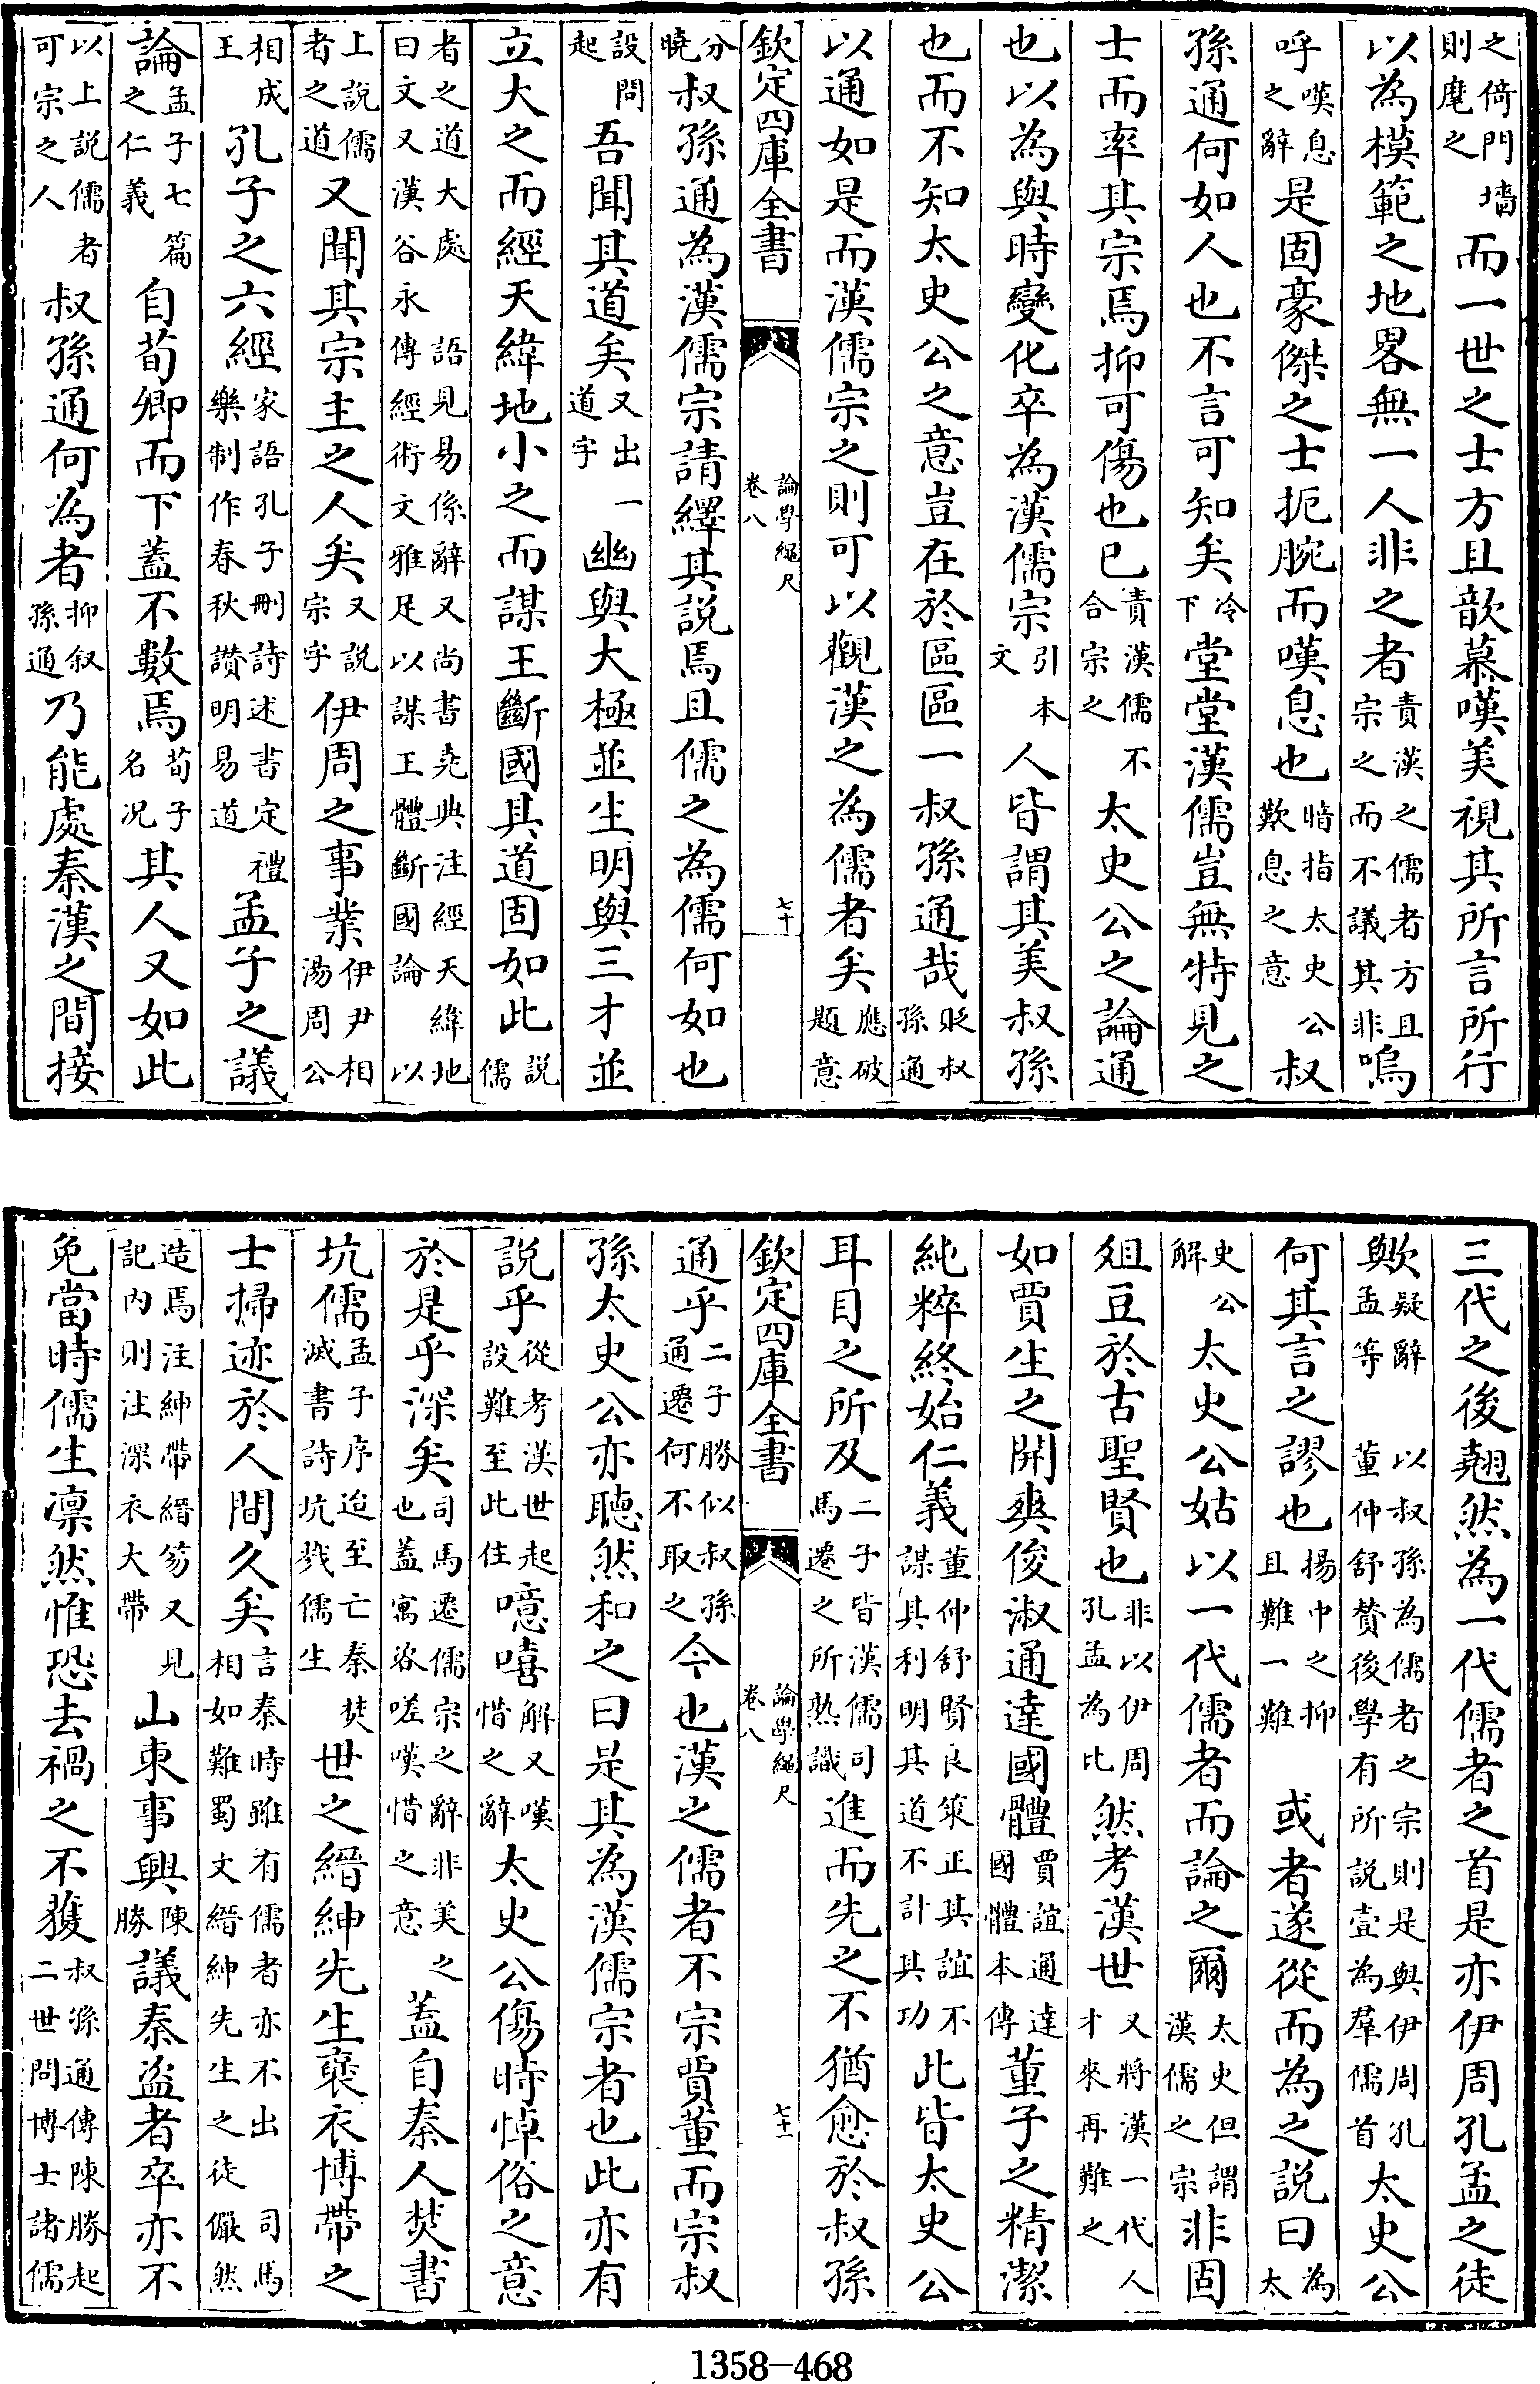 之倚門墻則麾之而一世之士方且歆慕嘆羙視其所言所行
以為模範之地畧無一人非之者責漢之儒者方且宗之而不議其非嗚
呼嘆息之辭是固豪傑之士扼腕而嘆息也暗指太史公歎息之意叔
孫通何如人也不言可知矣冷下堂堂漢儒豈無特見之
士而率其宗焉抑可傷也已責漢儒不合宗之太史公之論通
也以為與時變化卒為漢儒宗引本文人皆謂其美叔孫
也而不知太史公之意豈在於區區一叔孫通哉貶叔孫通
以通如是而漢儒宗之則可以觀漢之為儒者矣應破題意
欽定四庫全書
論學繩尺
卷八
七十
分曉叔孫通為漢儒宗請繹其説焉且儒之為儒何如也
設問起吾聞其道矣又出道字一幽與大極並生明與三才並
立大之而經天緯地小之而謀王斷國其道固如此説儒
者之道大處語見易係辭又尚書堯典注經天緯地曰文又漢谷永傳經術文雅足以謀王體斷國論以
上説儒者之道又聞其宗主之人矣又説宗字伊周之事業伊尹相湯周公
相成王孔子之六經家語孔子刪詩述書定禮樂制作春秋讃明易道孟子之議
論孟子七篇之仁義自荀卿而下蓋不數焉荀子名况其人又如此
以上説儒者可宗之人叔孫通何為者抑叔孫通乃能處秦漢之間接
三代之後翹然為一代儒者之首是亦伊周孔孟之徒
歟疑辭孟等以叔孫為儒者之宗則是與伊周孔董仲舒賛後學有所説壹為羣儒首太史公
何其言之謬也揚中之抑且難一難或者遂從而為之説曰為太
史公解太史公姑以一代儒者而論之爾太史但謂漢儒之宗非固
俎豆於古聖賢也非以伊周孔孟為比然考漢世又將漢一代人才來再難之
如賈生之開爽俊淑通達國體賈誼通達國體本傳董子之精潔
純粹終始仁義董仲舒賢良策正其誼不謀其利明其道不計其功此皆太史公
耳目之所及二子皆漢儒司馬遷之所熟識進而先之不猶愈於叔孫
欽定四庫全書
論學繩尺
卷八
七十一
通乎二子勝似叔孫通遷何不取之今也漢之儒者不宗賈董而宗叔
孫太史公亦聽然和之曰是其為漢儒宗者也此亦有
説乎從考漢世起設難至此住噫嘻解又嘆惜之辭太史公傷時悼俗之意
於是乎深矣司馬遷儒宗之辭非美之也蓋寓咨嗟嘆惜之意蓋自秦人焚書
坑儒孟子序迨至亡秦焚滅書詩坑戮儒生世之縉紳先生褒衣博帶之
士掃迹於人間久矣言秦時雖有儒者亦不出司馬相如難蜀文縉紳先生之徒儼然
造焉注紳帶縉笏又見記内則注深衣大帶山東事興陳勝議秦盗者卒亦不
免當時儒生凛然惟恐去禍之不獲叔孫通傳陳勝起二世問博士諸儒
1358-468